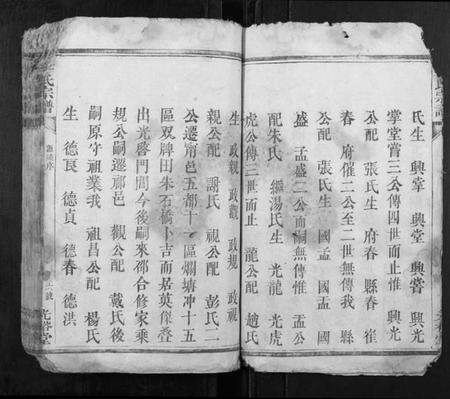 氏生 興掌 興堂 興嘗 興光
掌堂嘗三公傳四世而止惟 興光
公配 張氏生 府春 縣春 崔
春 府催二公至二世無傳我 縣
公配 張氏生 國孟 國孟 國
盛 孟盛二公而嗣無傳惟 孟公
配朱氏 繼湯氏生 光龍 光虎
虎公傳二世而止 龍公配 趙氏
生 政親 政觀 政規 政視
親公配 謝氏 視公配 彭氏二
公遷甯邑五都十一區爛塘冲十五
區双牌田朱石橋卜吉而居英傑叠
出光啓門閭今後嗣來邵合修家乗
規公嗣遷邵邑 觀公配 戴氏後
嗣原守祖業我 祖昌公配 楊氏
生 德良 德貞 德春 德洪
氏宗譜
光裕堂